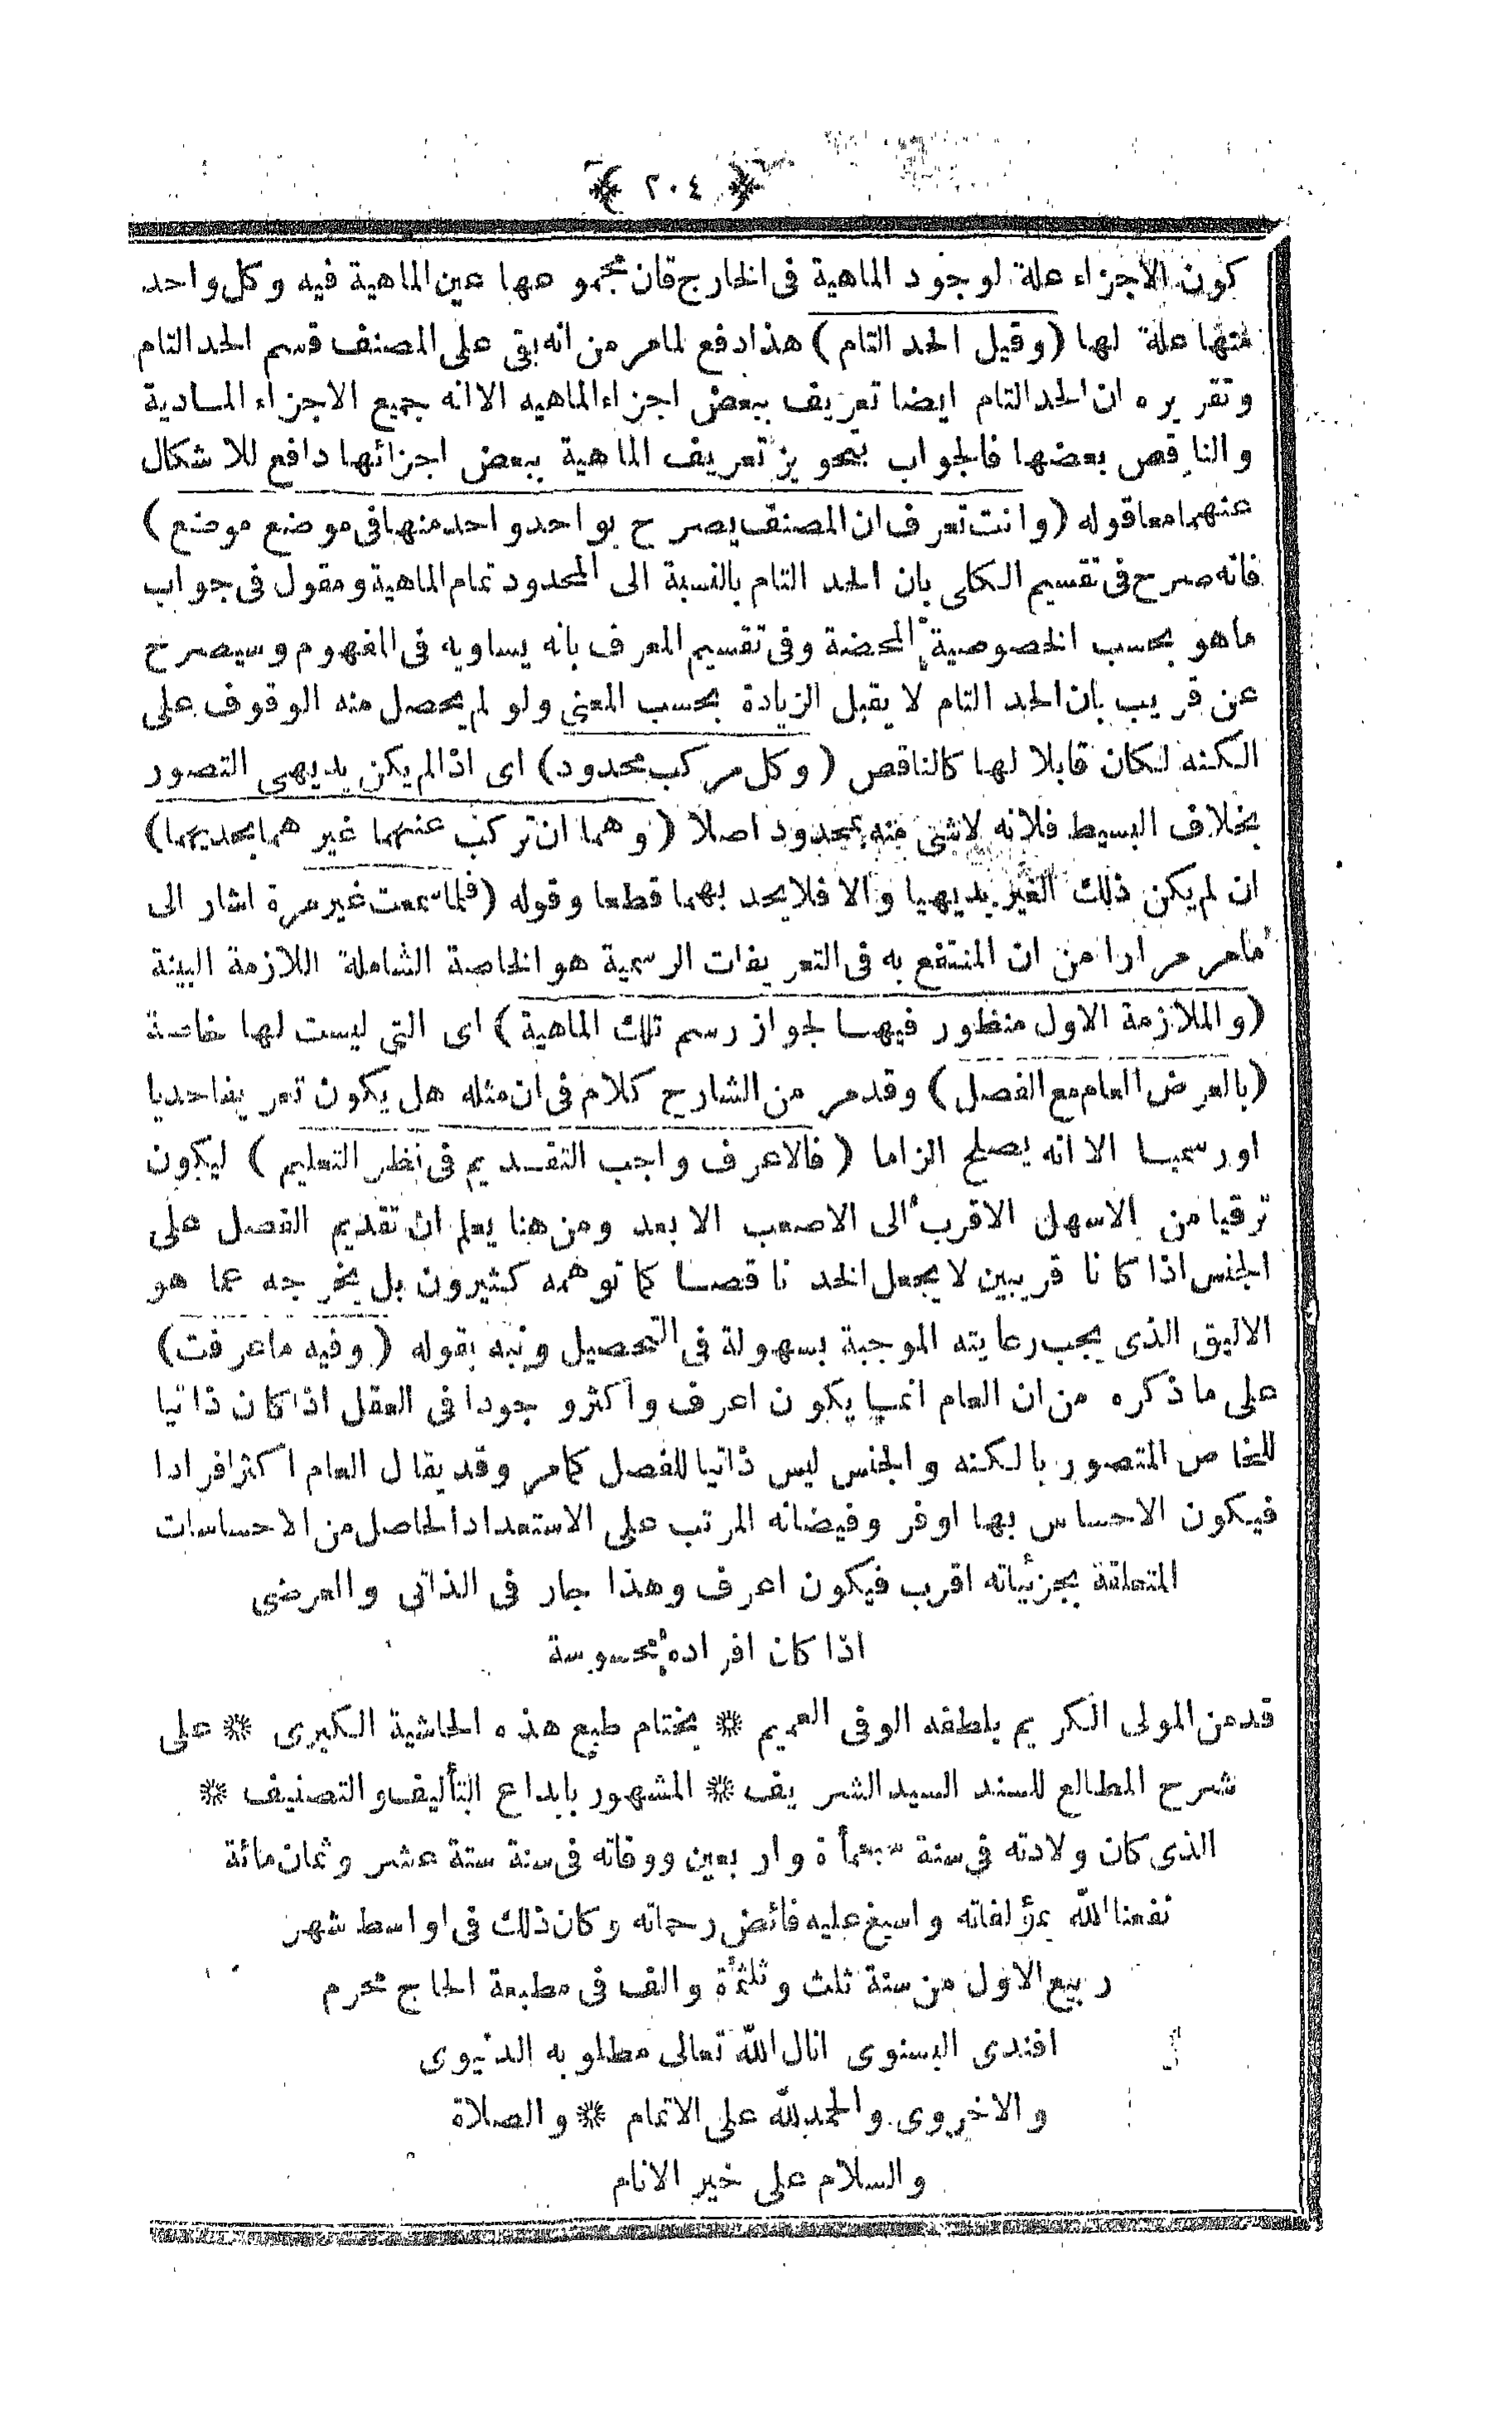 ﴿ ٢٠٤ ﴾
كون الاجزاء علة لوجود الماهية فى الخارج فان مجموعها عين الماهية فيه وكل واحد
منها علة لها (وقيل الحد التام) هذا دفع لمامر من انه بقى على المصنف قسم الحد التام
وتقريره ان الحد التام ايضا تعريف ببعض اجزاء الماهيه الا انه جميع الاجزاء المادية
والناقص بعضها فالجواب بتجويز تعريف الماهية ببعض اجزائها دافع للاشكال
عنهما معا قوله (وانت تعرف ان المصنف يصرح بواحد واحد منها فى موضع موضع)
فانه صرح فى تقسيم الكلى بان الحد التام بالنسبة الى المحدود تمام الماهية ومقول فى جواب
ماهو بحسب الخصوصية المحضة وفى تقسيم المعرف بانه يساويه فى المفهوم وسيصرح
عن قريب بان الحد التام لا يقبل الزيادة بحسب المعنى ولو لم يحصل منه الوقوف على
الكنه لكان قابلا لها كالناقص (وكل مركب محدود) اى اذا لم يكن بديهى التصور
بخلاف البسيط فلانه لاشئ منه بمحدود اصلا (وهما ان تركب عنهما غيرهما يحد بهما)
ان لم يكن ذلك الغير بديهيا والا فلا يحد بهما قطعا وقوله (فلما سمعت غير مرة اشار الى
مامر مرارا من ان المنتفع به فى التعريفات الرسمية هو الخاصة الشاملة اللازمة البينة
(والملازمة الاول منظور فيها لجواز رسم تلك الماهية) اى التى ليست لها خاصة
(بالعرض العام مع الفصل) وقد مر من الشارح كلام فى ان مثله هل يكون تعريفا حديا
او رسميا الا انه يصلح الزاما (فالاعرف واجب التقديم فى نظر التعليم) ليكون
ترقيا من الاسهل الاقرب الى الاصعب الابعد ومن هنا يعلم ان تقديم الفصل على
الجنس اذا كانا قريبين لا يجعل الحد ناقصا كما توهمه كثيرون بل يخرجه عما هو
الاليق الذى يجب رعايته الموجبة بسهولة فى التحصيل ونبه بقوله (وفيه ماعرفت)
على ما ذكره من ان العام انما يكون اعرف واكثر وجودا فى العقل اذا كان ذاتيا
للخاص المتصور بالكنه والجنس ليس ذاتيا للفصل كمامر وقد يقال العام اكثر افرادا
فيكون الاحساس بها اوفر وفيضانه المرتب على الاستعداد الحاصل من الاحساسات
المتعلقة بجزئياته اقرب فيكون اعرف وهذا جار فى الذاتى والعرضى
اذا كان افراده محسوسة
قد من المولى الكريم بلطفه الوفى العميم ❊ بختام طبع هذه الحاشية الكبرى ❊ على
شرح المطالع للسند السيد الشريف ❊ المشهور بابداع التأليف والتصنيف ❊
الذى كان ولادته فى سنة سبعمأة واربعين ووفاته فى سنة ستة عشر وثمان مائة
نفعنا الله بمؤلفاته واسبغ عليه فائض رحماته وكان ذلك فى اواسط شهر
ربيع الاول من سنة ثلث وثلثمأة والف فى مطبعة الحاج محرم
افندى البسنوى انال الله تعالى مطلوبه الدنيوى
والاخروى والحمدلله على الاتمام ❊ والصلاة
والسلام على خير الانام